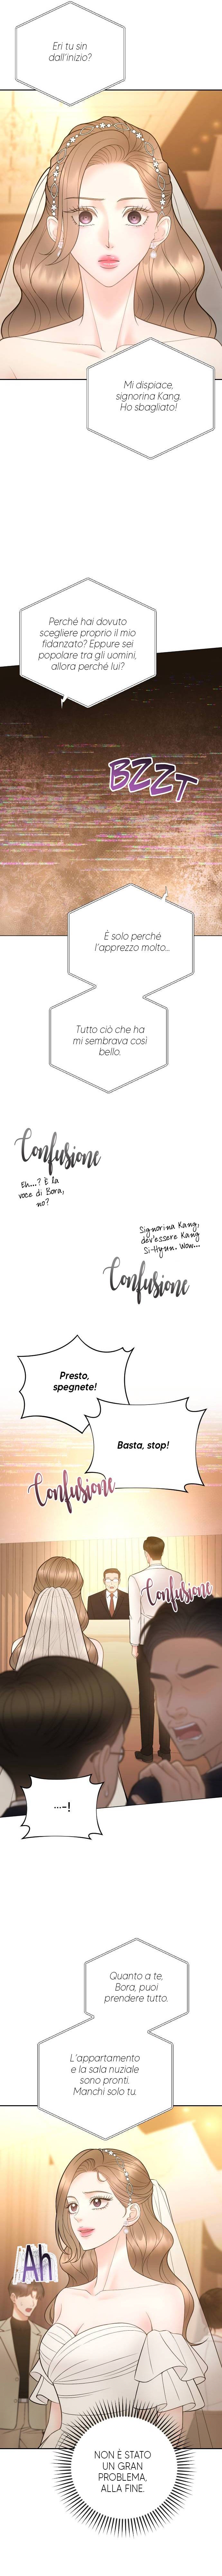 Eri tu sin
dall'inizio?
Mi dispiace,
signorina Kang.
Ho sbagliato!
Perché hai dovuto
scegliere proprio il mio
fidanzato? Eppure sei
popolare tra gli uomini,
allora perché lui?
BZZT
È solo perché
l'apprezzo molto...
Tutto ciò che ha
mi sembrava così
bello.
Confusione
Eh...? È la
voce di Bora,
no?
Signorina Kang,
dev'essere Kang
Si-Hyun. Wow...
Confusione
Presto,
spegnete!
Basta, stop!
Confusione
Confusione
...-!
Quanto a te,
Bora, puoi
prendere tutto.
L'appartamento
e la sala nuziale
sono pronti.
Manchi solo tu.
Ah
NON È STATO
UN GRAN
PROBLEMA,
ALLA FINE.